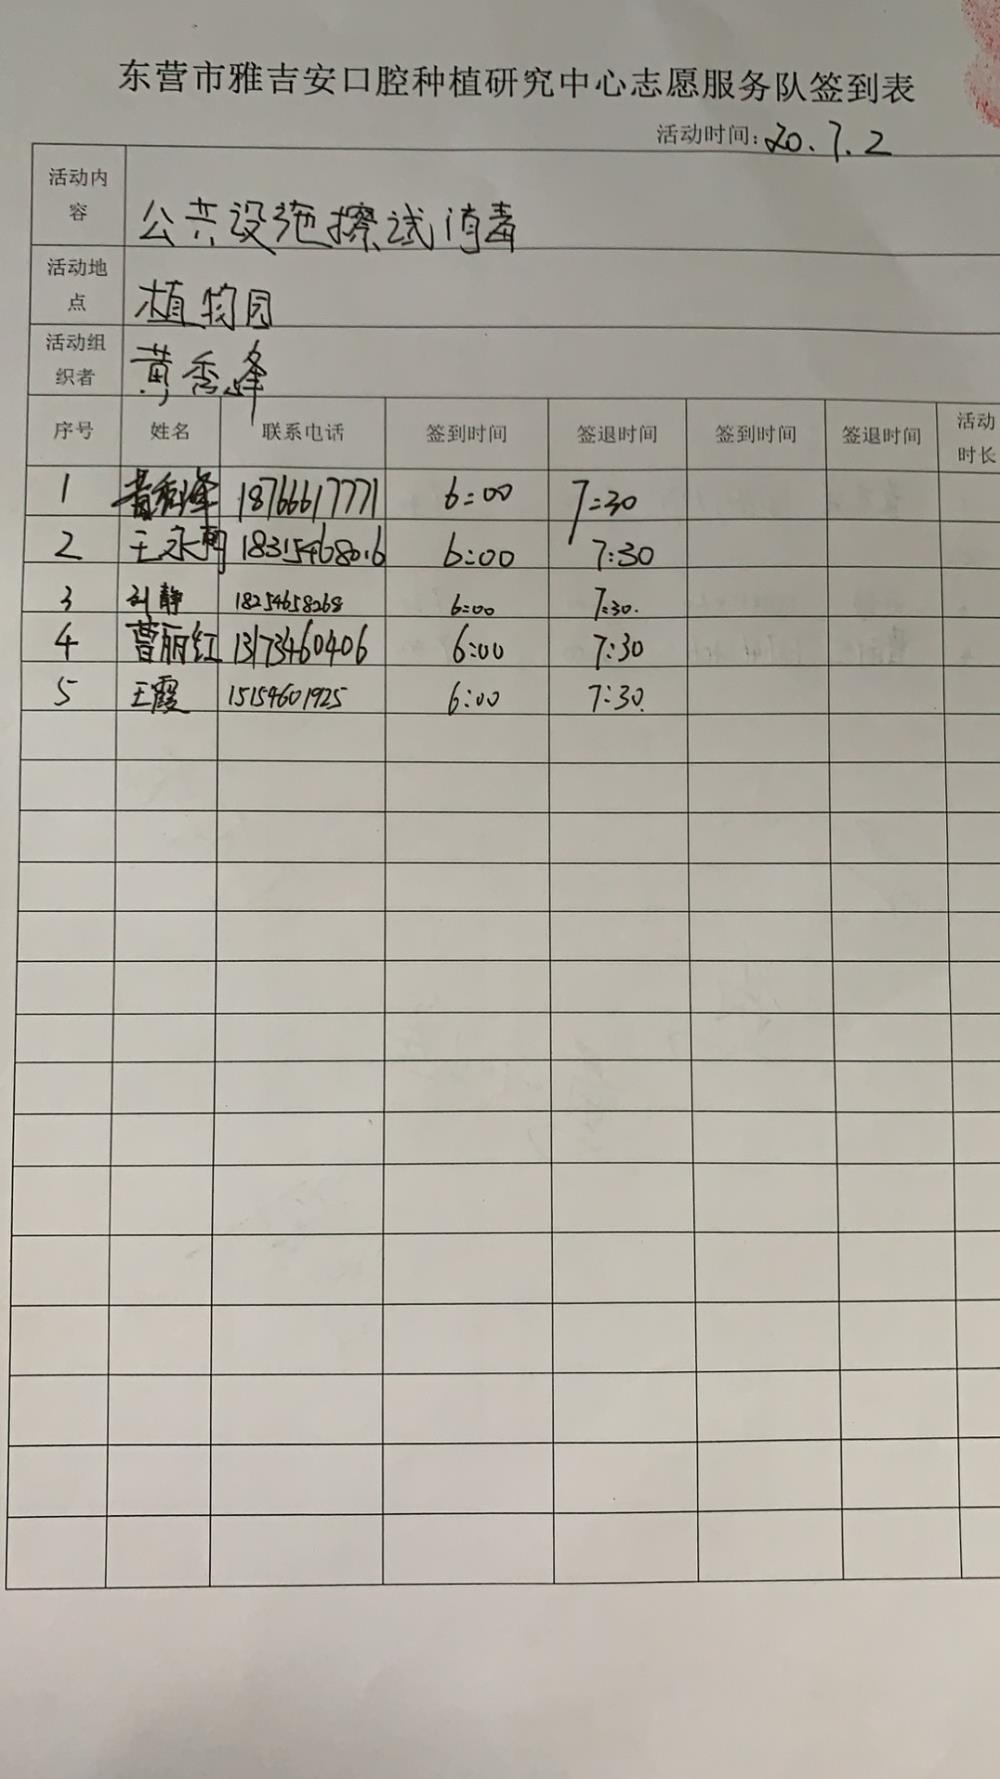 东营市雅吉安口腔种植研究中心志愿服务队签到表
活动时间：20.7.2
活动内容 公共设施擦试消毒
活动地点 植物园
活动组织者 黄秀峰
序号 姓名 联系电话 签到时间 签退时间 签到时间 签退时间 活动时长
1 黄秀峰 18766617771 6:00 7:30
2 王永 18315468016 6:00 7:30
3 刘静 18254658268 6:00 7:30.
4 曹丽红 13173460406 6:00 7:30
5 王霞 15154601925 6:00 7:30.